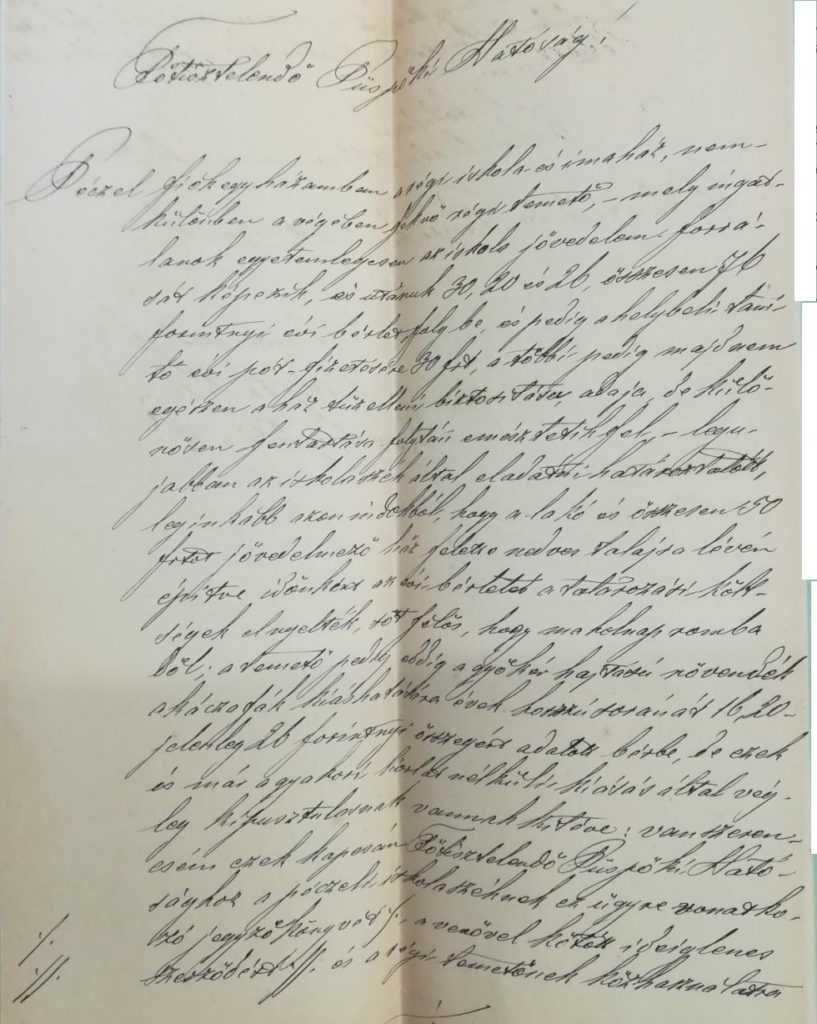 Főtisztelendő Püspöki Hatóság!
Péczel fiókegyházamban a régi iskola és imaház, nem-
különben a végében fekvő régi temető, – mely ingat-
lanok egyetemlegesen az iskola jövedelem forrá-
sát képezik, és utánuk 30, 20 és 26, összesen 76
forintnyi évi bérlet foly be, és pedig a helybeli taní-
tó évi pót-fizetésére 30 frt, a többi pedig majdnem
egészen a ház tűz elleni biztosítása, adaja, de külö-
nösen fentartása folytán emésztetik fel, – legu-
jabban az iskolaszék által eladatni határoztatott,
leginkább azon indokból, hogy a lakó és összesen 50
frtot jövedelmező ház felette nedves talajra lévén
építve időnként az évi bérletet a tatarozási költ-
ségek elnyelték, sőt félős, hogy maholnap romba
dől; a temető pedig eddig a gyöker hajtású növendék
akáczafák kiáshatására évek hosszú során át 16, 20-
jelenleg 26 forintnyi összegért adatott bérbe, de ezek
is már a gyakori korlát nélküli kiásás által vég-
leg kipusztulásnak vannak kitéve: van szeren-
csém ezek kapcsán Főtisztelendő Püspöki Ható-
sághoz a péczeli iskolaszéknek ez ügyre vonatko-
./. zó jegyzőkönyvét ./. a vevővel kötött ideiglenes
.//. szerződést .//. és a régi temetőnek közhasználatra